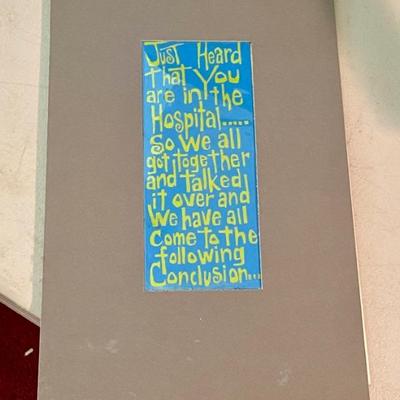 Just Heard
that You
are in the
Hospital.....
So we all
got together
and talked
it over and
We have all
Come to the
following
Conclusion...